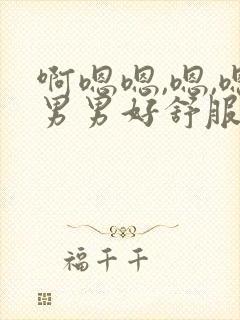 啊嗯嗯,嗯,嗯
男男好舒服
福千千